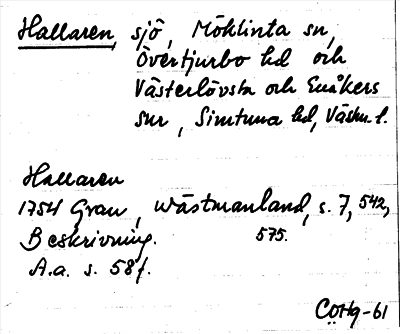 Hallaren, sjö, Möklinta sn,
Övertjurbo hd och
Västerlövsta och Enåkers
snr, Simtuna hd, Västm. l.
Hallaren
1754 Grau, Wästmanland, s. 7, 542,
Beskrivning. 575.
A.a. s. 58f.
COHg-61